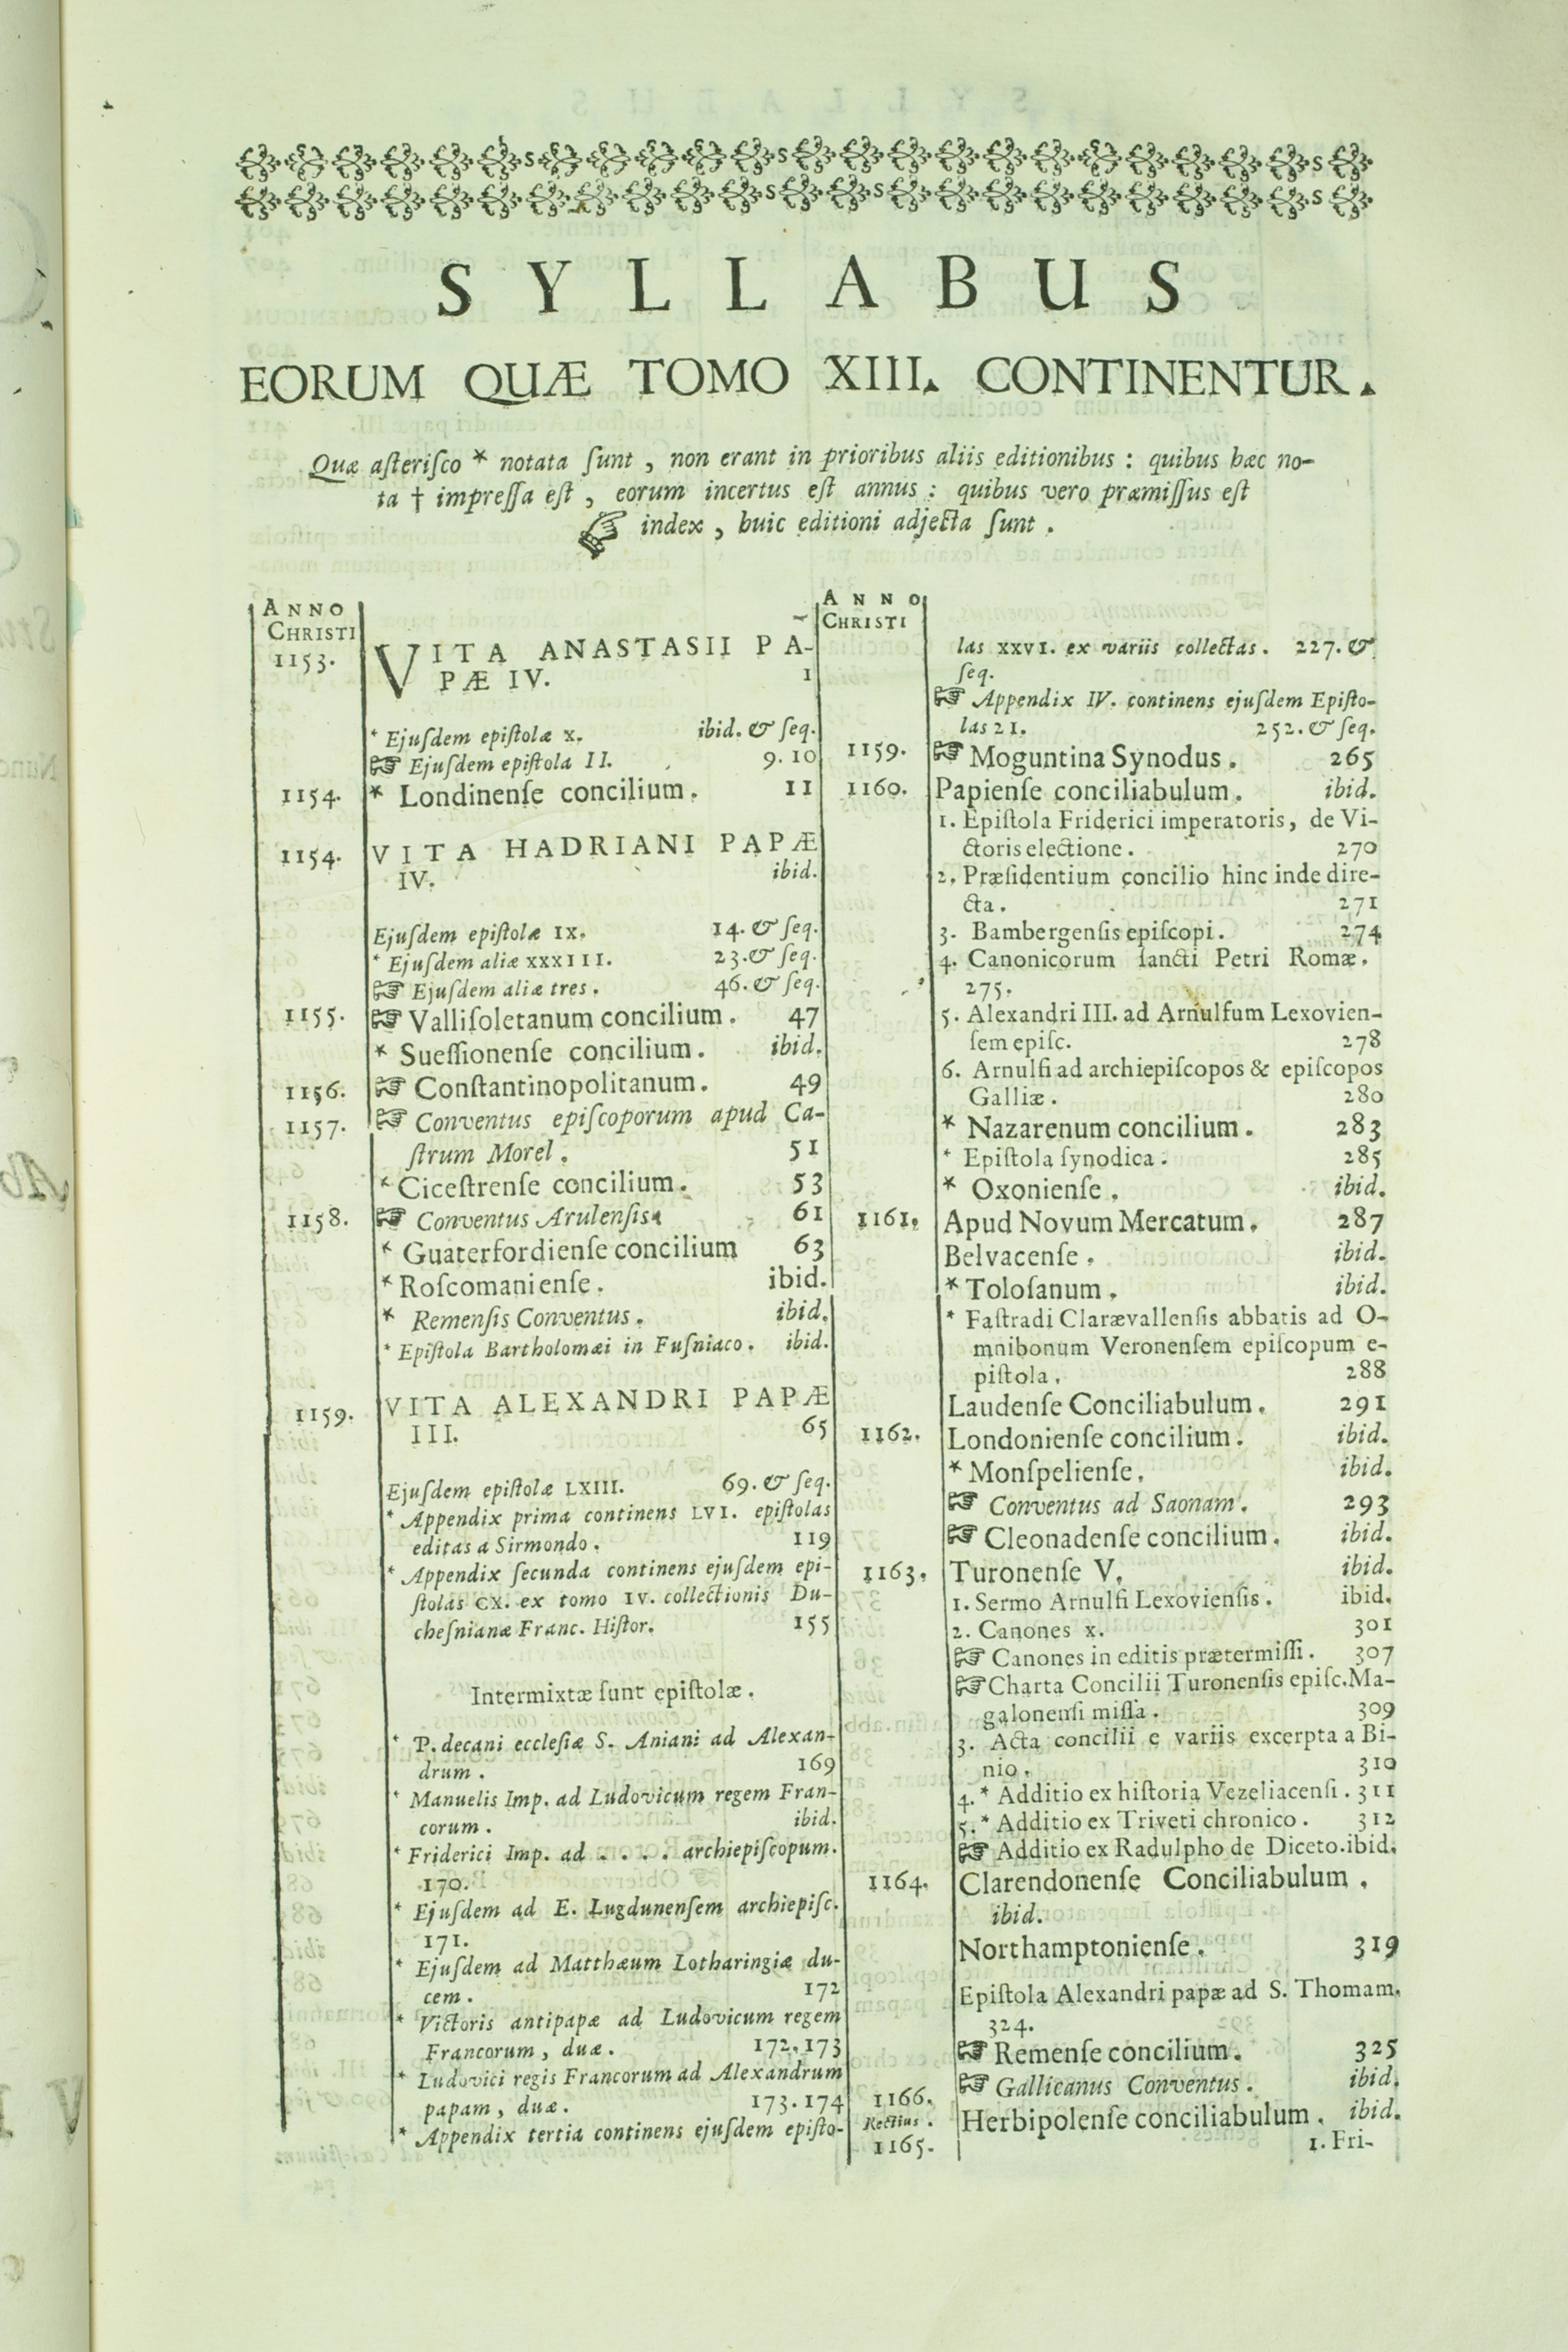 SYLLABUS
EORUM QUÆ TOMO XIII. CONTINENTUR.
Quæ aſteriſco * notata ſunt, non erant in prioribus aliis editionibus: quibus hæc no-
ta † impreſſa eſt, eorum incertus eſt annus: quibus vero præmiſſus eſt
☞ index, huic editioni adjecta ſunt.
ANNO
CHRISTI
1153. VITA ANASTASII PA-
PÆ IV. 1
* Ejuſdem epiſtolæ X. ibid. & ſeq.
☞ Ejuſdem epiſtola II. 9. 10
1154. * Londinenſe concilium. 11
1154. VITA HADRIANI PAPÆ
IV. ibid.
Ejuſdem epiſtolæ IX. 14. & ſeq.
* Ejuſdem aliæ XXXIII. 23. & ſeq.
☞ Ejuſdem aliæ tres. 46. & ſeq.
1155. ☞ Valliſoletanum concilium. 47
* Sueſſionenſe concilium. ibid.
1156. ☞ Conſtantinopolitanum. 49
1157. ☞ Conventus epiſcoporum apud Ca-
ſtrum Morel. 51
* Ciceſtrenſe concilium. 53
1158. ☞ Conventus Arulenſis. 61
* Guaterfordienſe concilium 63
* Roſcomanienſe. ibid.
* Remenſis Conventus. ibid.
* Epiſtola Bartholomæi in Fuſniaco. ibid.
1159. VITA ALEXANDRI PAPÆ
III. 65
Ejuſdem epiſtolæ LXIII. 69. & ſeq.
* Appendix prima continens LVI. epiſtolas
editas a Sirmondo. 119
* Appendix ſecunda continens ejuſdem epi-
ſtolas CX. ex tomo IV. collectionis Du-
cheſnianæ Franc. Hiſtor. 155
Intermixtæ ſunt epiſtolæ.
* P. decani eccleſiæ S. Aniani ad Alexan-
drum. 169
* Manuelis Imp. ad Ludovicum regem Fran-
corum. ibid.
* Friderici Imp. ad . . . . archiepiſcopum.
170.
* Ejuſdem ad E. Lugdunenſem archiepiſc.
171.
* Ejuſdem ad Matthæum Lotharingiæ du-
cem. 172
* Victoris antipapæ ad Ludovicum regem
Francorum, duæ. 172. 173
* Ludovici regis Francorum ad Alexandrum
papam, duæ. 173. 174
* Appendix tertia continens ejuſdem epiſto-
ANNO
CHRISTI
las XXVI. ex variis collectas. 227. &
ſeq.
☞ Appendix IV. continens ejuſdem Epiſto-
las 21. 252. & ſeq.
1159. ☞ Moguntina Synodus. 265
1160. Papienſe conciliabulum. ibid.
1. Epiſtola Friderici imperatoris, de Vi-
ctoris electione. 270
2. Præſidentium concilio hinc inde dire-
cta. 271
3. Bambergenſis epiſcopi. 274
4. Canonicorum ſancti Petri Romæ.
275.
5. Alexandri III. ad Arnulfum Lexovien-
ſem epiſc. 278
6. Arnulfi ad archiepiſcopos & epiſcopos
Galliæ. 280
* Nazarenum concilium. 283
* Epiſtola ſynodica. 285
* Oxonienſe. ibid.
1161. Apud Novum Mercatum. 287
Belvacenſe. ibid.
* Toloſanum. ibid.
* Faſtradi Clarævallenſis abbatis ad O-
mnibonum Veronenſem epiſcopum e-
piſtola. 288
Laudenſe Conciliabulum. 291
1162. Londonienſe concilium. ibid.
* Monſpelienſe. ibid.
☞ Conventus ad Saonam. 293
☞ Cleonadenſe concilium. ibid.
1163. Turonenſe V. ibid.
1. Sermo Arnulfi Lexovienſis. ibid.
2. Canones x. 301
☞ Canones in editis prætermiſſi. 307
☞ Charta Concilii Turonenſis epiſc. Ma-
galonenſi miſſa. 309
3. Acta concilii e variis excerpta a Bi-
nio. 310
4. * Additio ex hiſtoria Vezeliacenſi. 311
5. * Additio ex Triveti chronico. 312
☞ Additio ex Radulpho de Diceto. ibid.
1164. Clarendonenſe Conciliabulum.
ibid.
Northamptonienſe. 319
Epiſtola Alexandri papæ ad S. Thomam.
324.
☞ Remenſe concilium. 325
☞ Gallicanus Conventus. ibid.
1166.
Rectius. Herbipolenſe conciliabulum. ibid.
1165. 1. Fri-